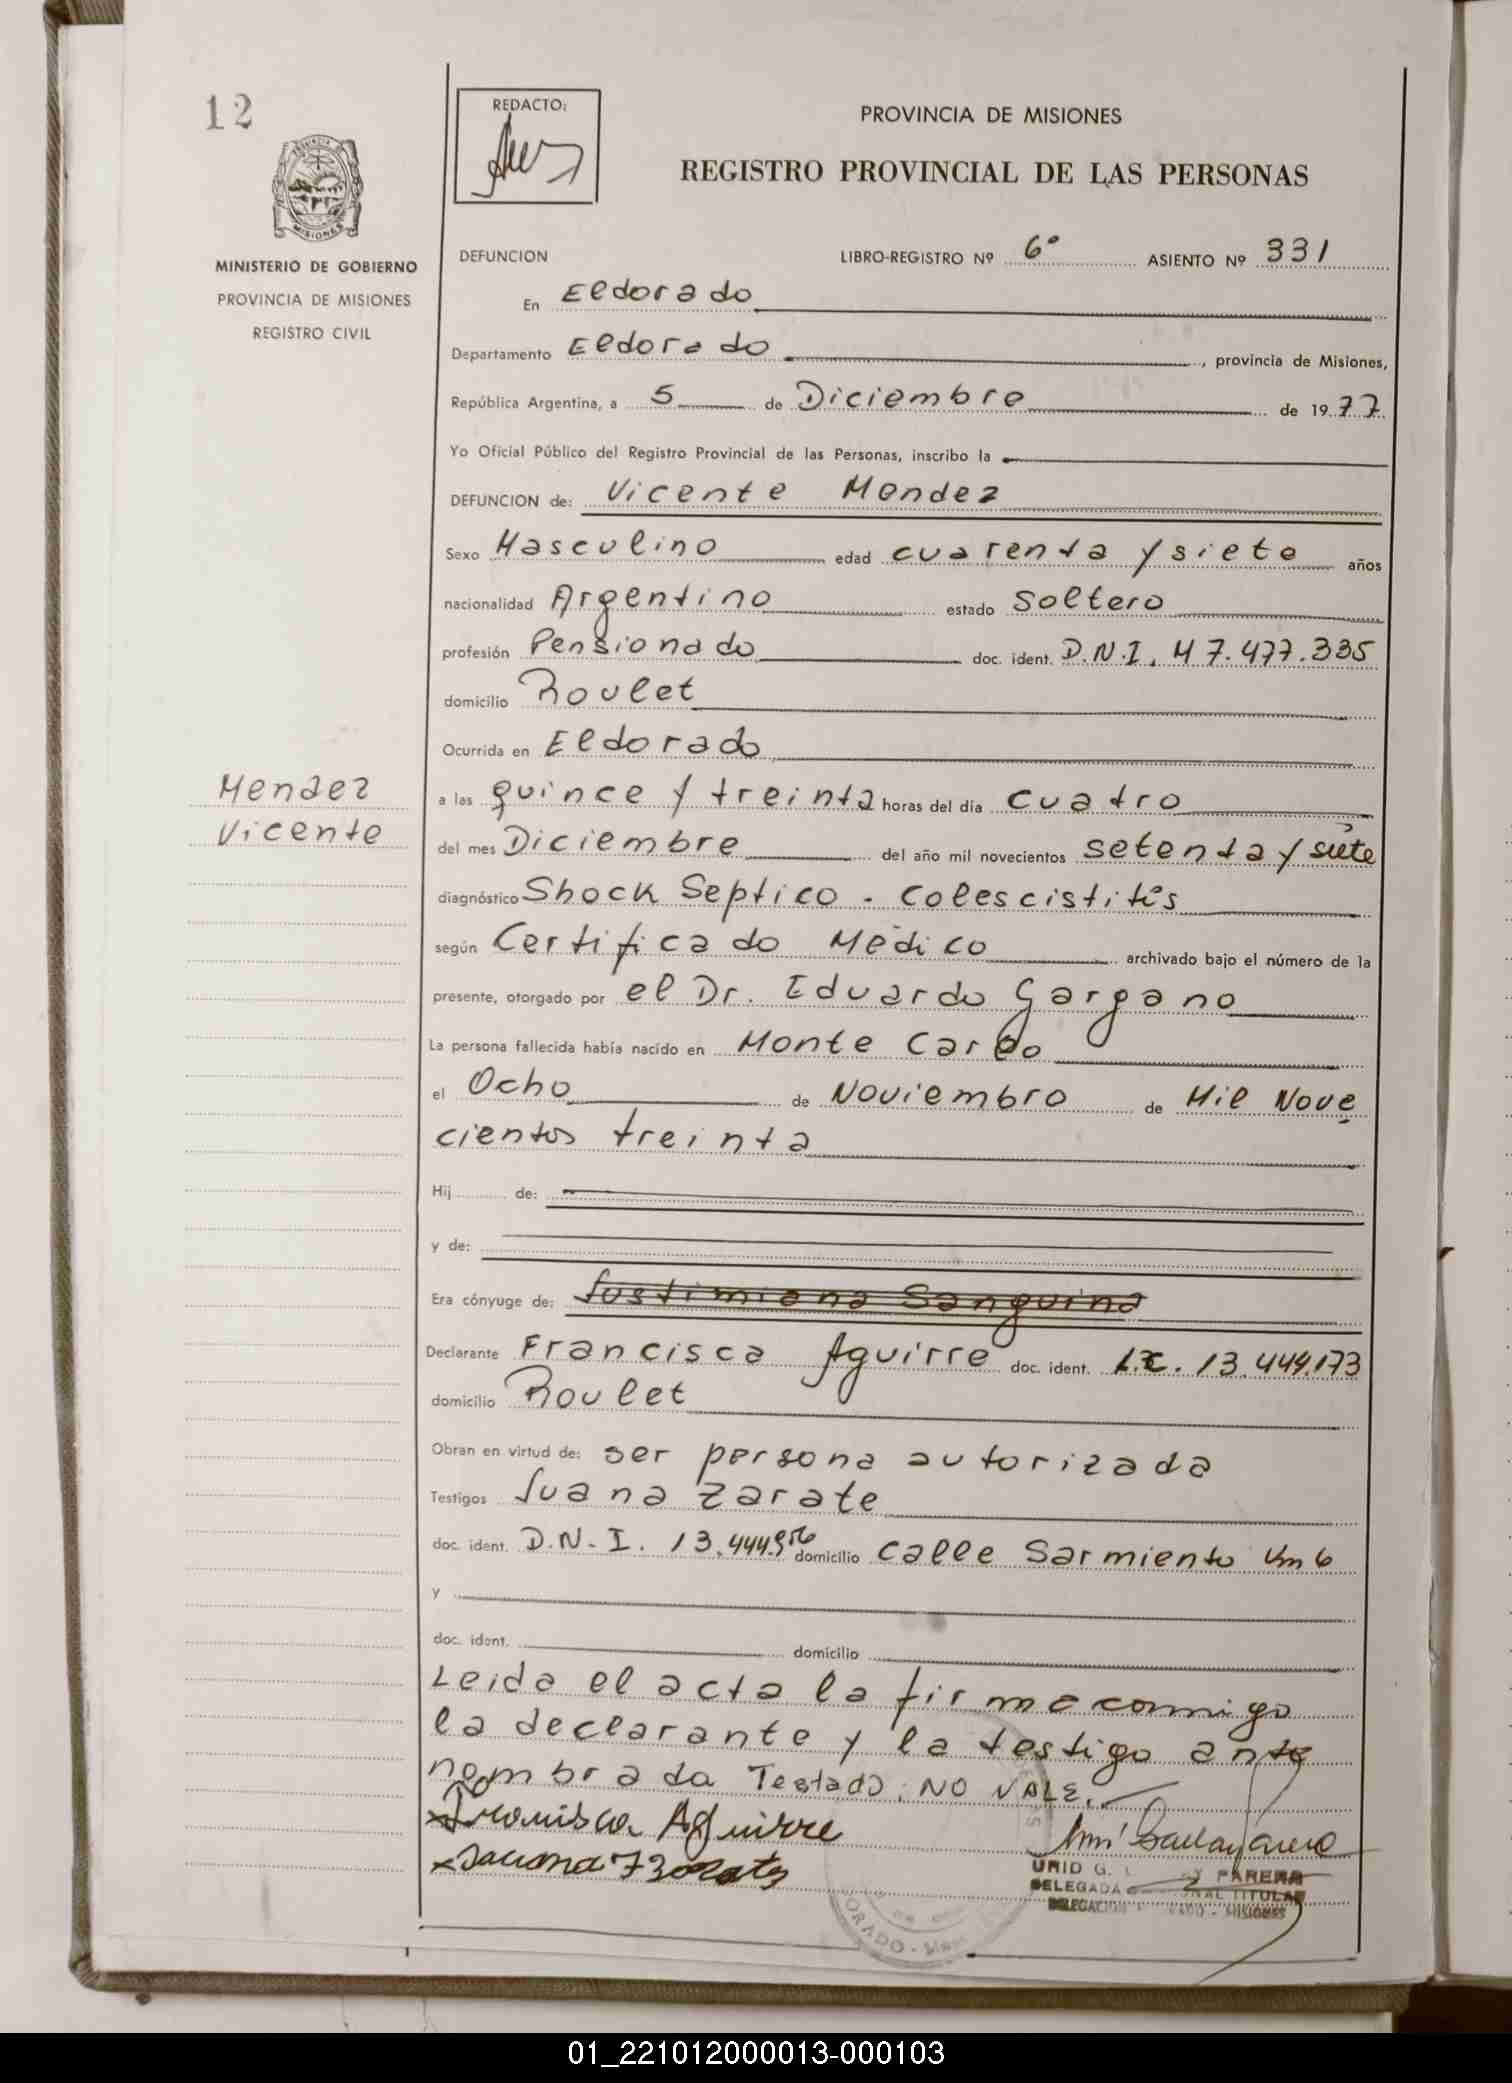 12
REDACTO:
PROVINCIA DE MISIONES
REGISTRO PROVINCIAL DE LAS PERSONAS
MISIONES
MINISTERIO DE GOBIERNO
PROVINCIA DE MISIONES
REGISTRO CIVIL
DEFUNCION LIBRO-REGISTRO Nº 6º ASIENTO Nº 331
En Eldorado
Departamento Eldorado, provincia de Misiones,
República Argentina, a 5 de Diciembre de 1977
Yo Oficial Público del Registro Provincial de las Personas, inscribo la
DEFUNCION de: Vicente Mendez
Sexo Masculino edad cuarenta y siete años
nacionalidad Argentino estado Soltero
profesión Pensionado doc. ident. D.N.I. M 7.477.335
domicilio Roulet
Ocurrida en Eldorado
Mendez
Vicente
a las quince y treinta horas del día cuatro
del mes Diciembre del año mil novecientos setenta y siete
diagnóstico Shock Septico - Colescistitis
según Certificado Médico archivado bajo el número de la
presente, otorgado por el Dr. Eduardo Gargano
La persona fallecida había nacido en Monte Carlo
el Ocho de Noviembro de Mil Nove
cientos treinta
Hij de:
y de:
Era cónyuge de: Justimiana Sanguina
Declarante Francisca Aguirre doc. ident. 13.449.173
domicilio Roulet
Obran en virtud de: ser persona autorizada
Testigos Juana Zarate
doc. ident. D.N.I. 13.444. domicilio Calle Sarmiento Km 6
y
doc. ident. domicilio
Leida el acta la firma conmigo
la declarante y la testigo ante
nombrada Testado: NO VALE.
Francisca Aguirre
URID G. PARERA
DELEGADA TITULAR
DELEGACION - MISIONES
ORADO - 
01_221012000013-000103